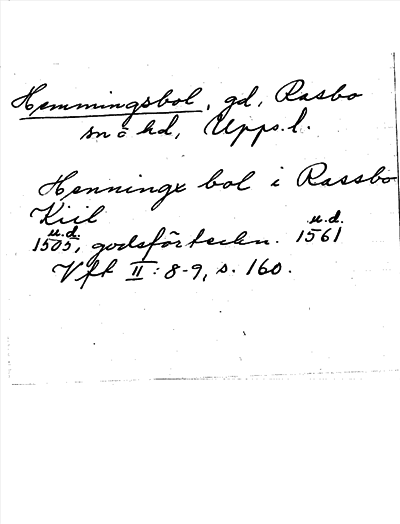 Hemmingsbol, gd, Rasbo
sn o hd, Upps.l.
Henningx bol i Rassbo
Kiil
u.d. u.d.
1505, godsförteckn. 1561
Vft II: 8-9, s. 160.